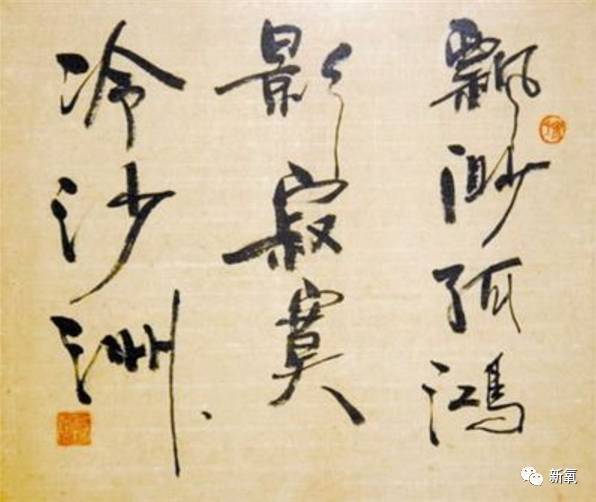 飄渺孤鴻
影寂寞
冷沙洲
新氧